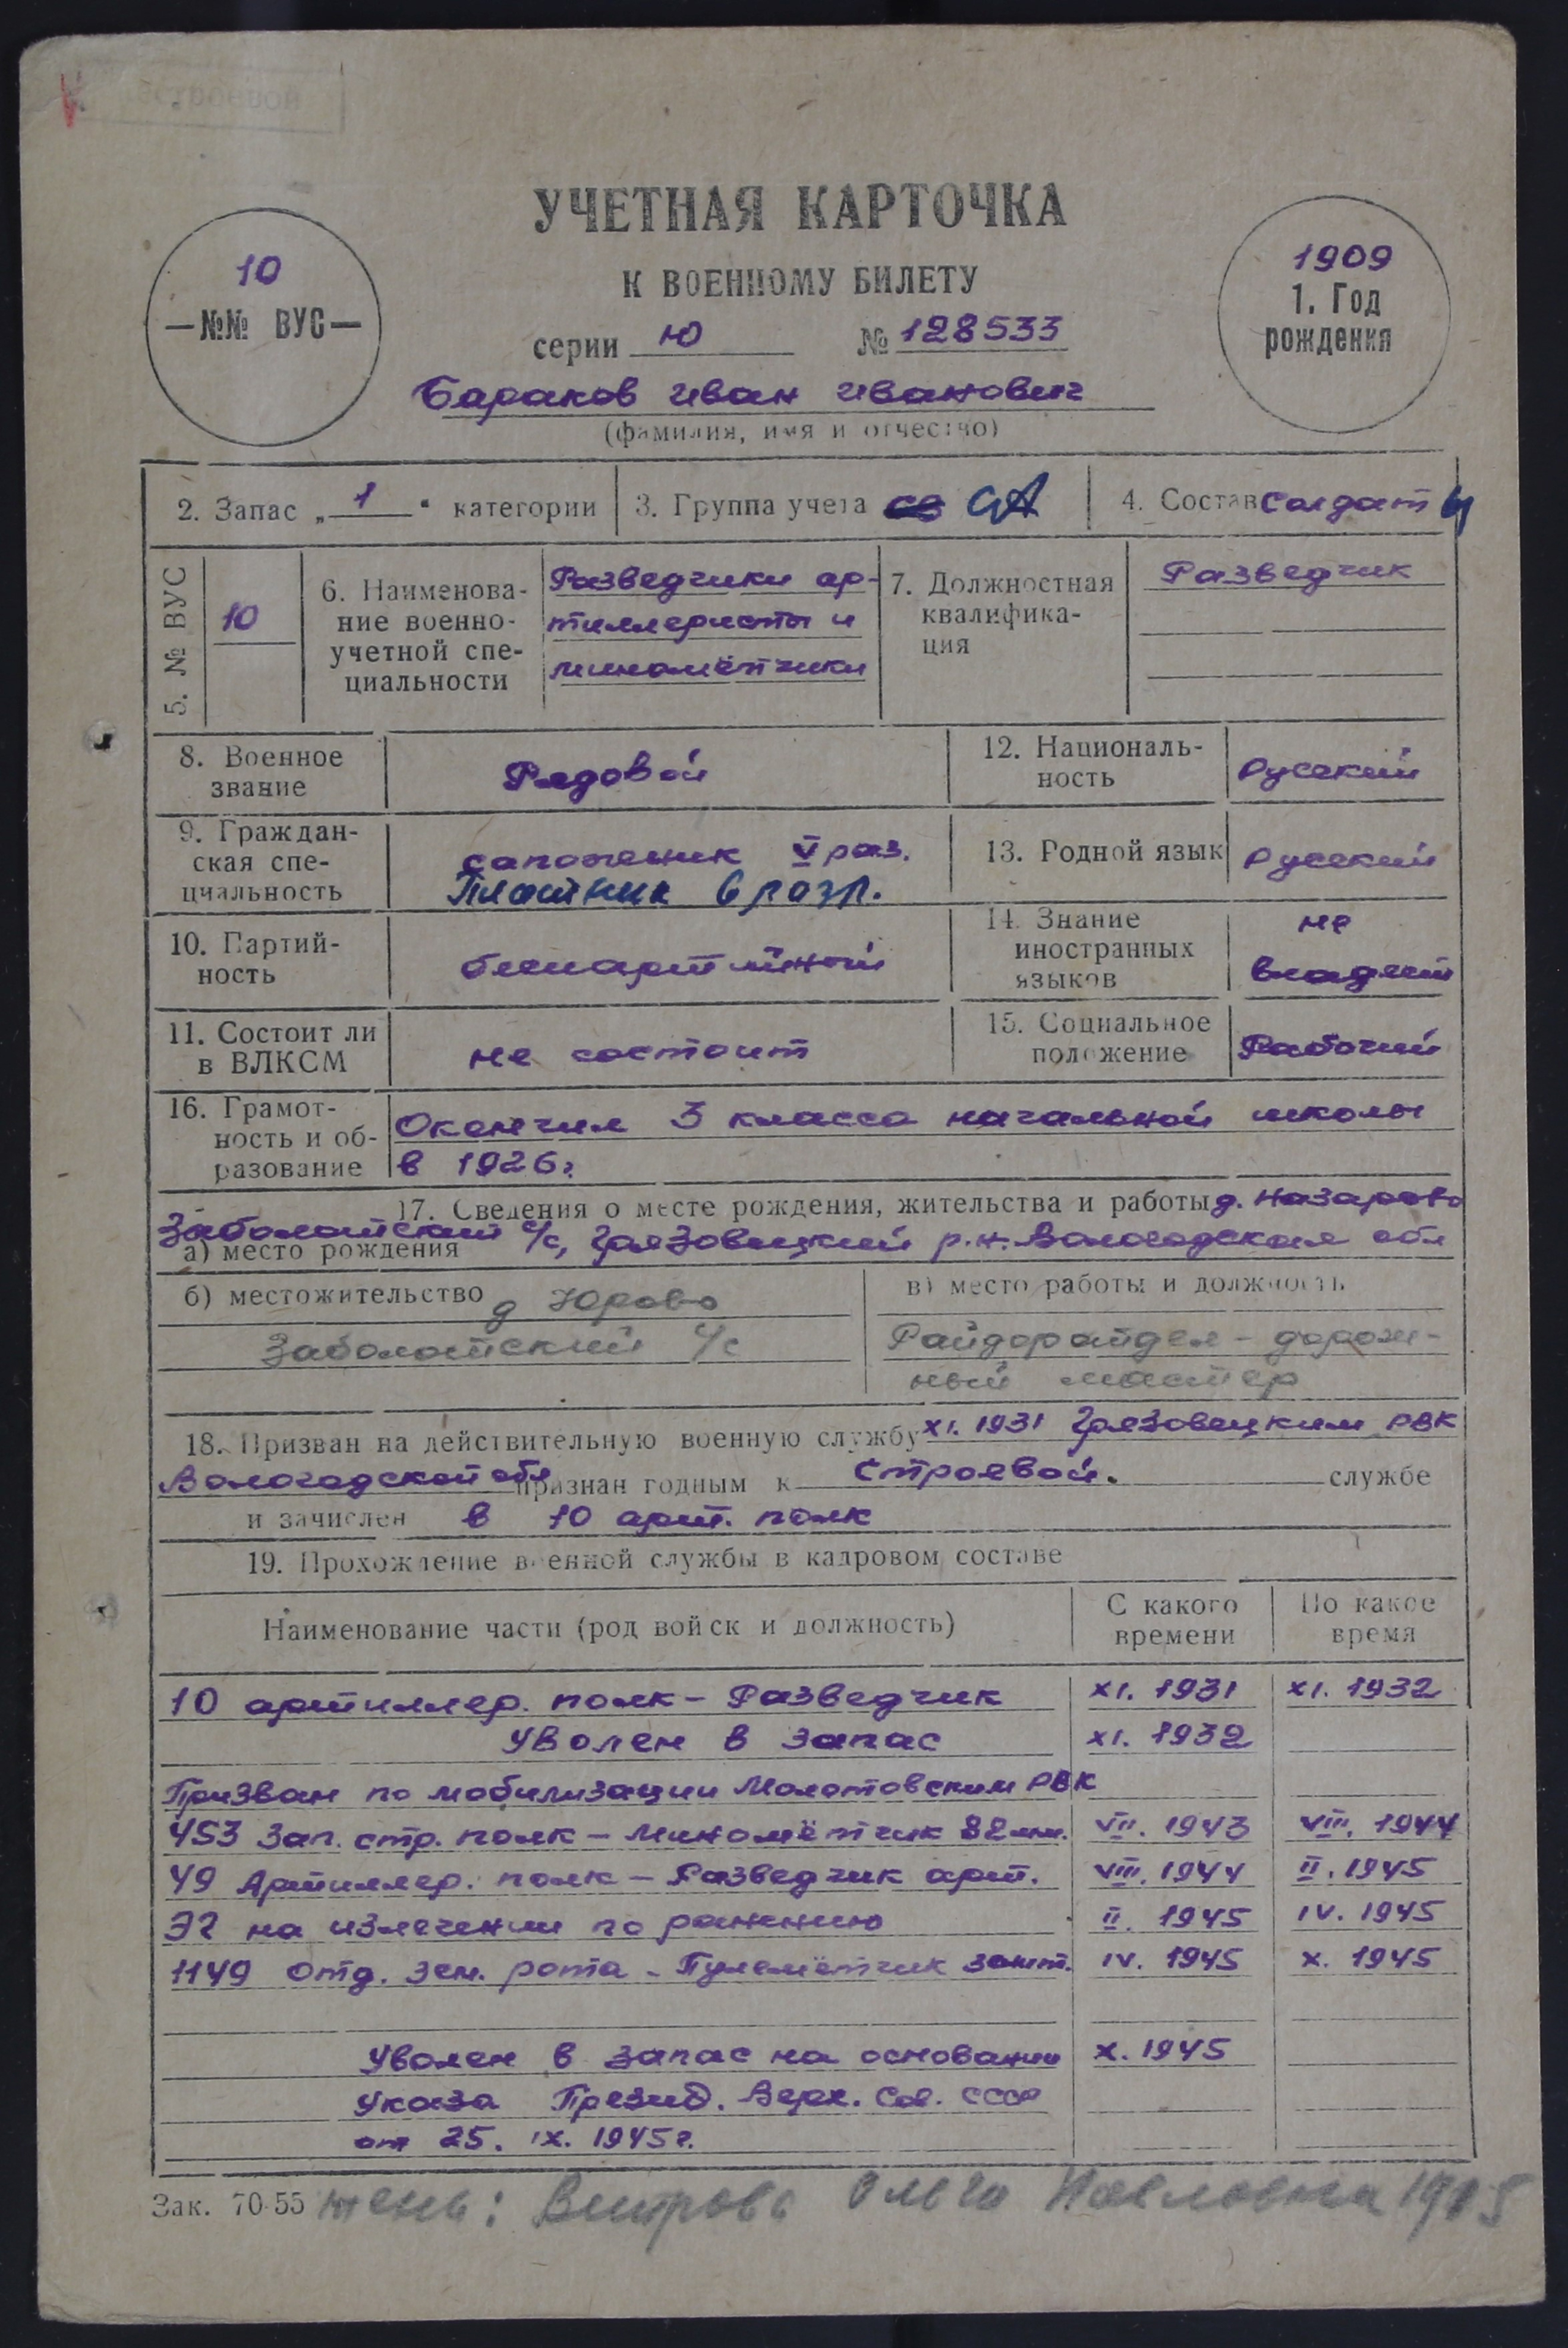 УЧЕТНАЯ КАРТОЧКА
К ВОЕННОМУ БИЛЕТУ
10
—№№ ВУС—
серии Ю № 128533
1909
1. Год
рождения
Бараков Иван Иванович
(фамилия, имя и отчество)
2. Запас „1“ категории
3. Группа учета СА
4. Состав солдат
5. № ВУС
10
6. Наименова-
ние военно-
учетной спе-
циальности
Разведчики ар-
тиллеристы и
миномётчики
7. Должностная
квалифика-
ция
Разведчик
8. Военное
звание
Рядовой
12. Националь-
ность
Русский
9. Граждан-
ская спе-
циальность
сапожник V раз.
Плотник 6 разр.
13. Родной язык
Русский
10. Партий-
ность
беспартийный
14. Знание
иностранных
языков
не
владеет
11. Состоит ли
в ВЛКСМ
не состоит
15. Социальное
положение
Рабочий
16. Грамот-
ность и об-
разование
Окончил 3 класса начальной школы
в 1926г.
17. Сведения о месте рождения, жительства и работы д. Назарово
Заболотский с/с, Грязовецкий р.н. Вологодская обл
а) место рождения
б) местожительство д Юрово
Заболотский с/с
в) место работы и должность
Райдоротдел - дорож-
ный мастер
18. Призван на действительную военную службу XI. 1931 Грязовецким РВК
Вологодской обл признан годным к строевой. службе
и зачислен в 10 арт. полк
19. Прохождение военной службы в кадровом составе
Наименование части (род войск и должность)
С какого
времени
По какое
время
10 артиллер. полк - Разведчик XI. 1931 XI. 1932
Уволен в запас XI. 1932
Призван по мобилизации Молотовским РВК
453 Зап. стр. полк - Миномётчик 82мм. VII. 1943 VIII. 1944
49 Артиллер. полк - Разведчик арт. VIII. 1944 II. 1945
ЭГ на излечении по ранению II. 1945 IV. 1945
1149 Отд. зен. рота - Пулемётчик зенит. IV. 1945 X. 1945
Уволен в запас на основании X. 1945
Указа Презид. Верх. Сов. СССР
от 25. IX. 1945г.
Зак. 70-55
жена: Ольга Павловна